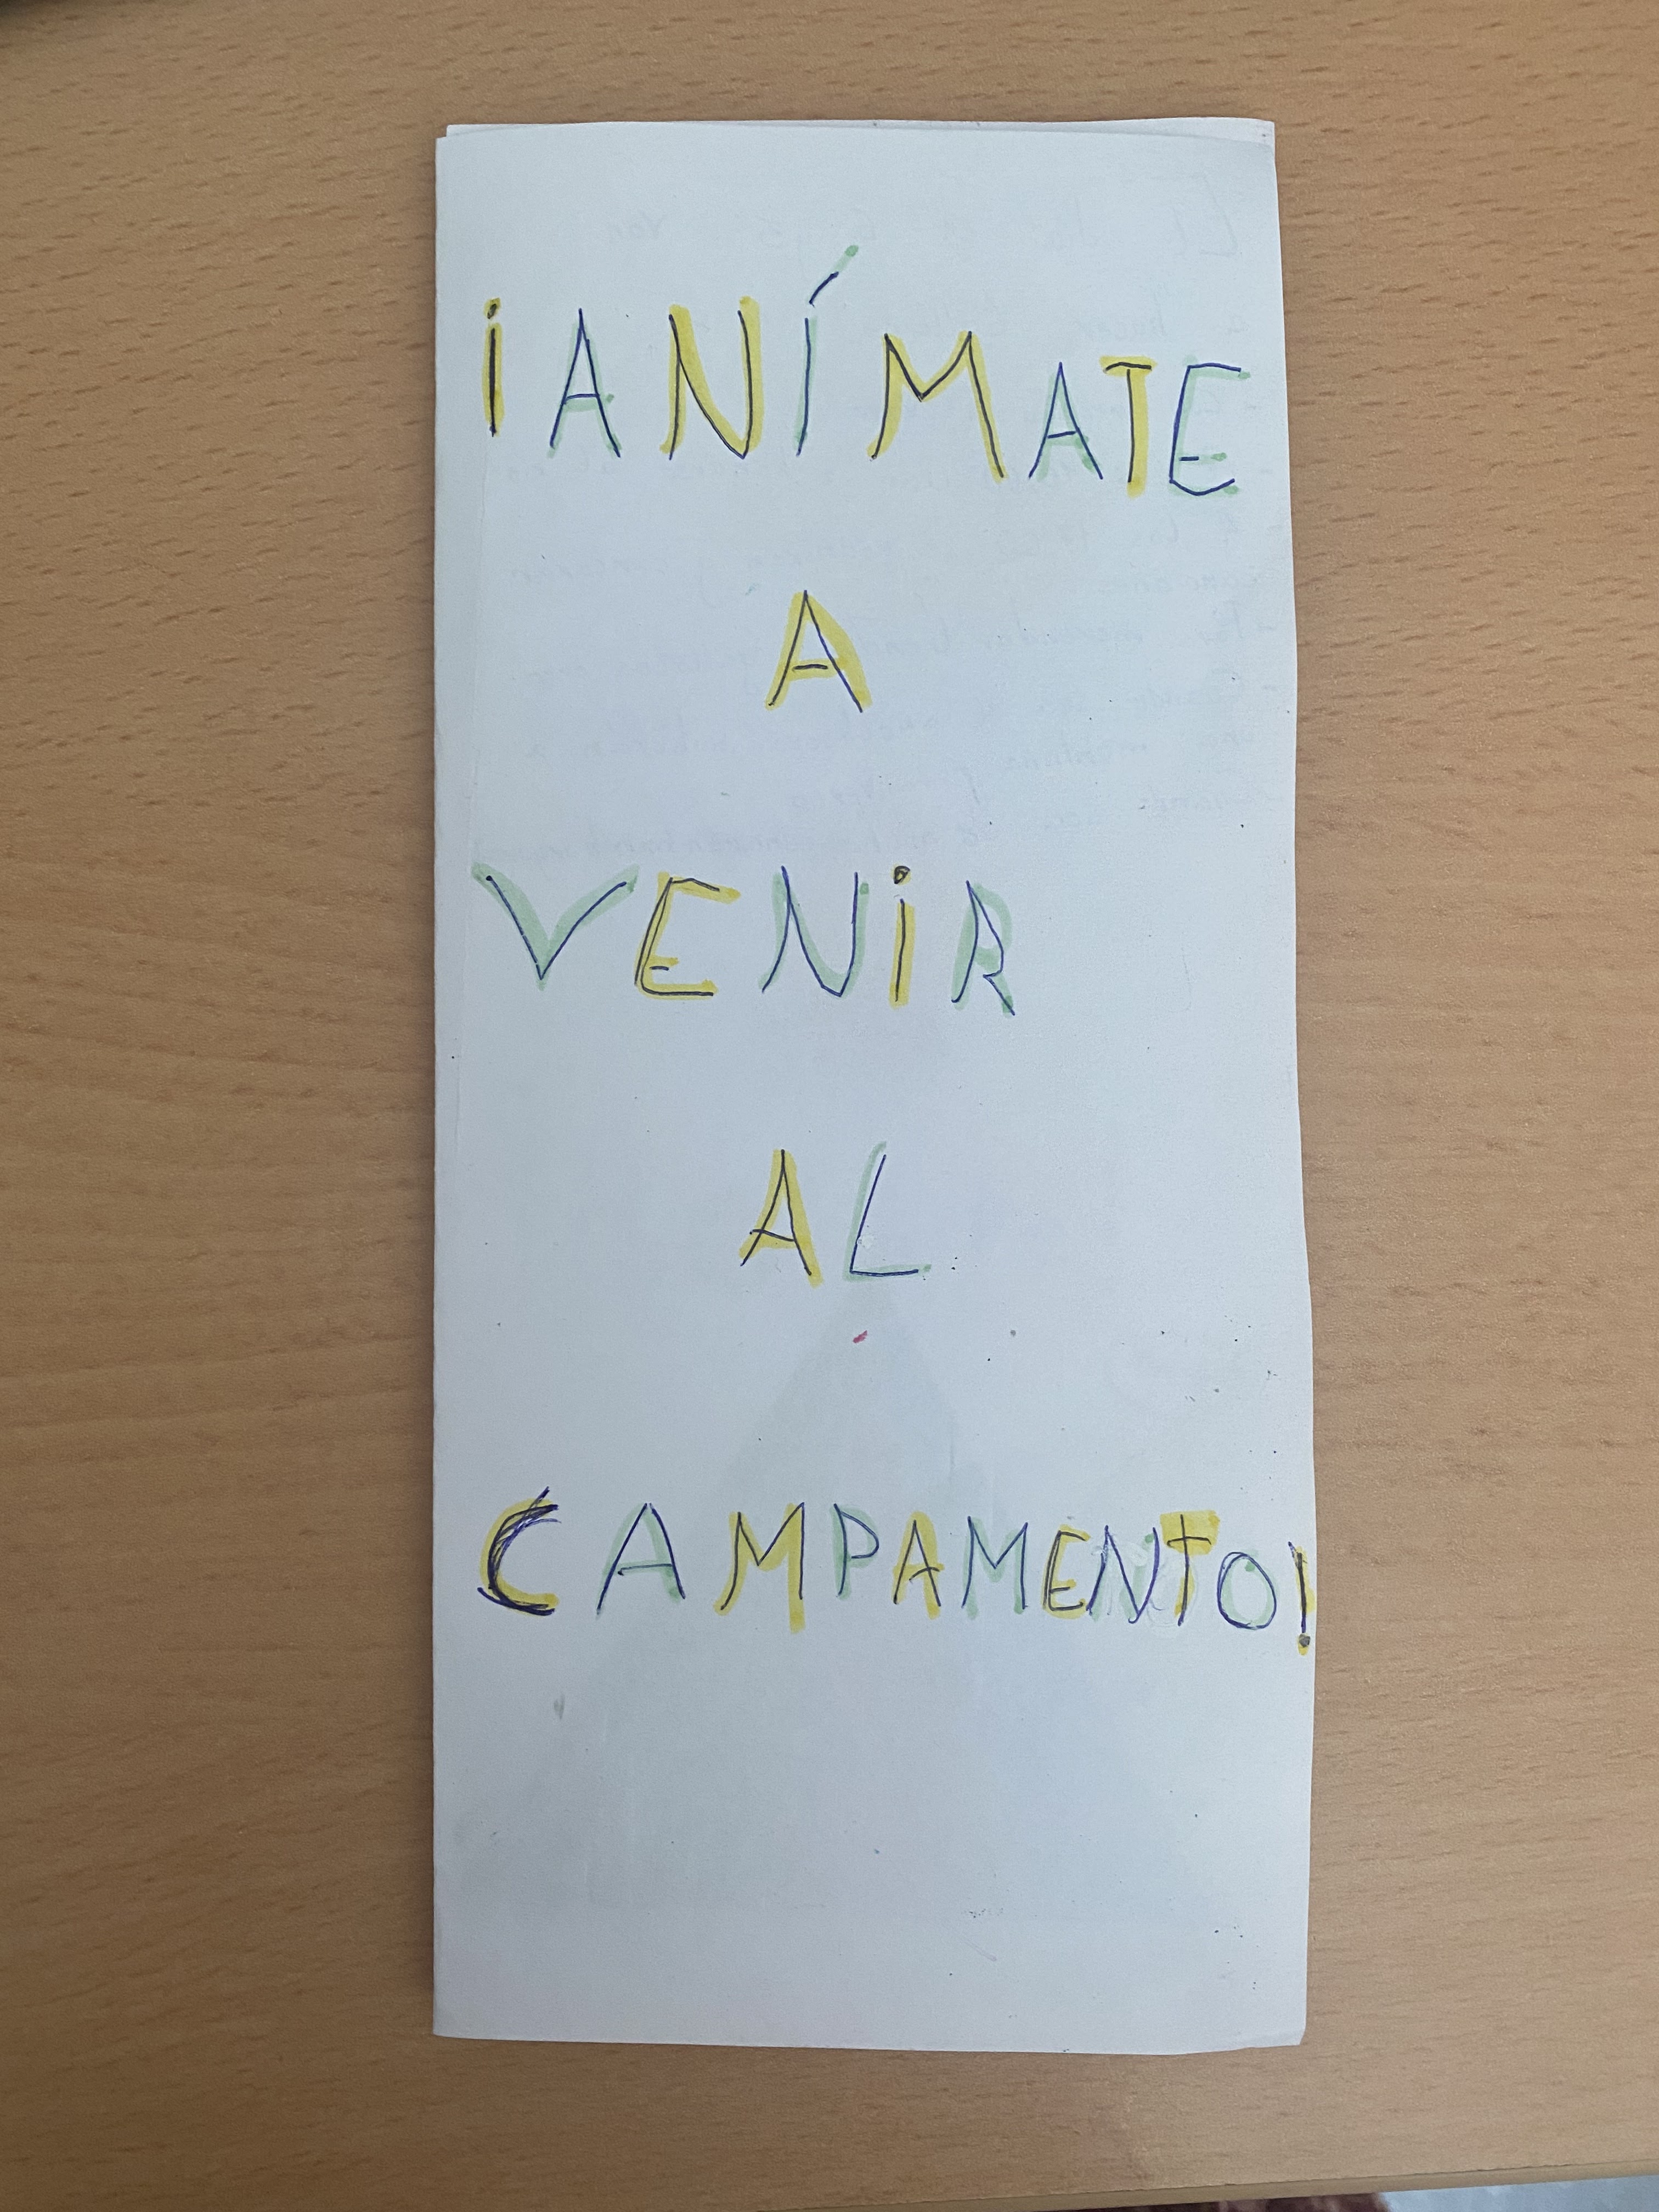 ¡ANÍMATE
A
VENiR
AL
CAMPAMENTO!